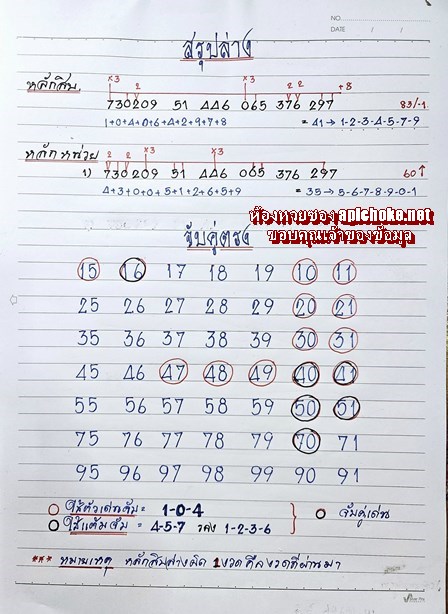 NO.
DATE / /
สรุปล่าง
หลักสิบ
×3 2 2 ×3 2 2 +8
730209 51 446 065 376 297 83/-1
1+0+4+0+6+4+2+9+7+8 = 41 → 1-2-3-4-5-7-9
หลักหน่วย
2 2 ×3 ×3
1) 730209 51 446 065 376 297 60↑
4+3+0+0+5+1+2+6+5+9 = 35 → 5-6-7-8-9-0-1
ห้องหวยซอง apichoke.net
ขอบคุณเจ้าของข้อมูล
จับคู่ตรง
15 16 17 18 19 10 11
25 26 27 28 29 20 21
35 36 37 38 39 30 31
45 46 47 48 49 40 41
55 56 57 58 59 50 51
75 76 77 78 79 70 71
95 96 97 98 99 90 91
ใช้ตัวเด่นจับ = 1-0-4
ใช้แต้มจับ = 4-5-7 รอง 1-2-3-6
จับคู่เด่น
*** หมายเหตุ หลักสิบล่างผิด 1 งวด คืองวดที่ผ่านมา